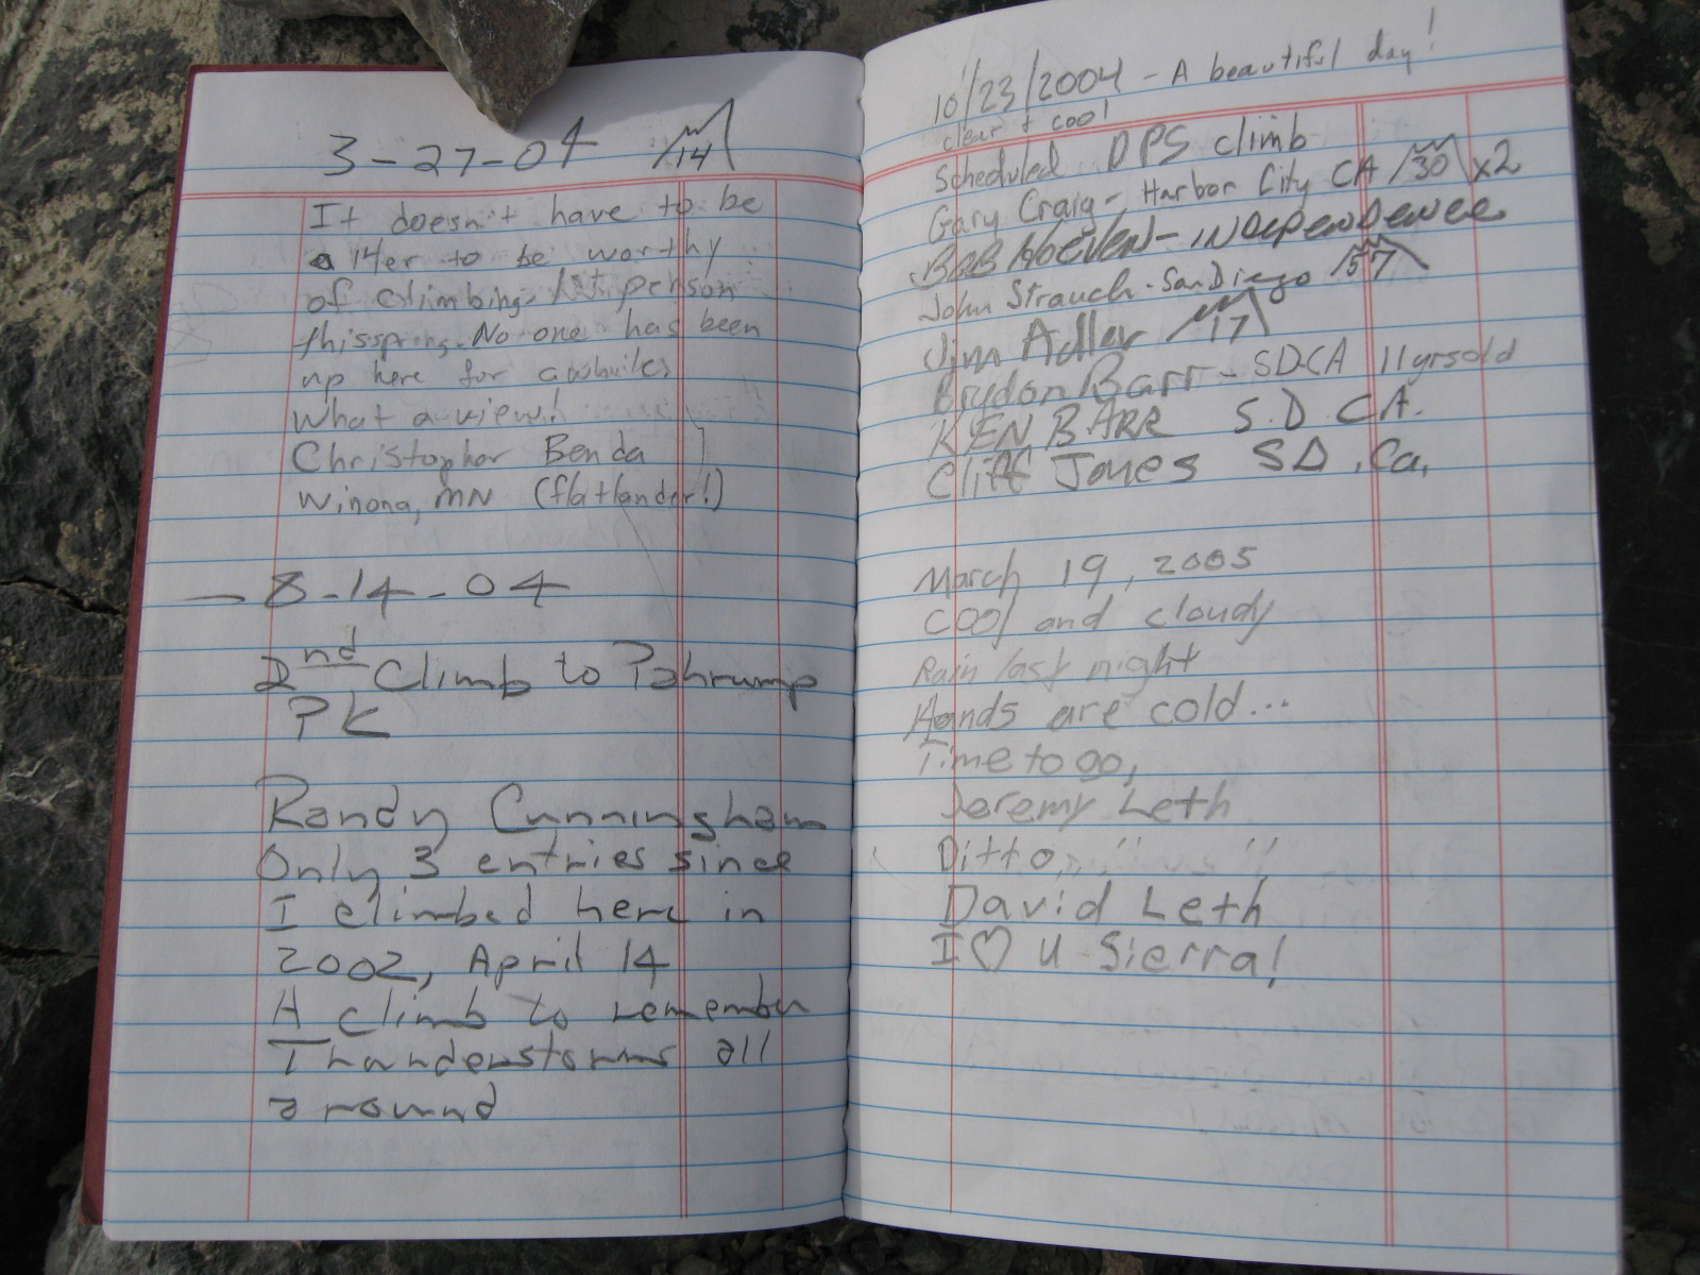 3-27-04 14
It doesn't have to be
a 14er to be worthy
of climbing. 1st person
this spring. No one has been
up here for awhile.
What a view!
Christopher Benda
Winona, MN (flatlander!)
- 8-14-04
2nd Climb to Pahrump
PK
Randy Cunningham
Only 3 entries since
I climbed here in
2002, April 14
A climb to remember
Thunderstorms all
around
10/23/2004 - A beautiful day!
clear + cool
Scheduled DPS climb
Gary Craig - Harbor City CA 30 x2
Bob Hoeven - Independence
John Strauch - San Diego 57
Jim Adler 17
Brydon Barr - SDCA 11yrsold
KEN BARR S.D. CA.
Cliff Jones SD, Ca,
March 19, 2005
cool and cloudy
Rain last night
Hands are cold...
Time to go,
Jeremy Leth
Ditto, " "
David Leth
I ♡ U Sierra!